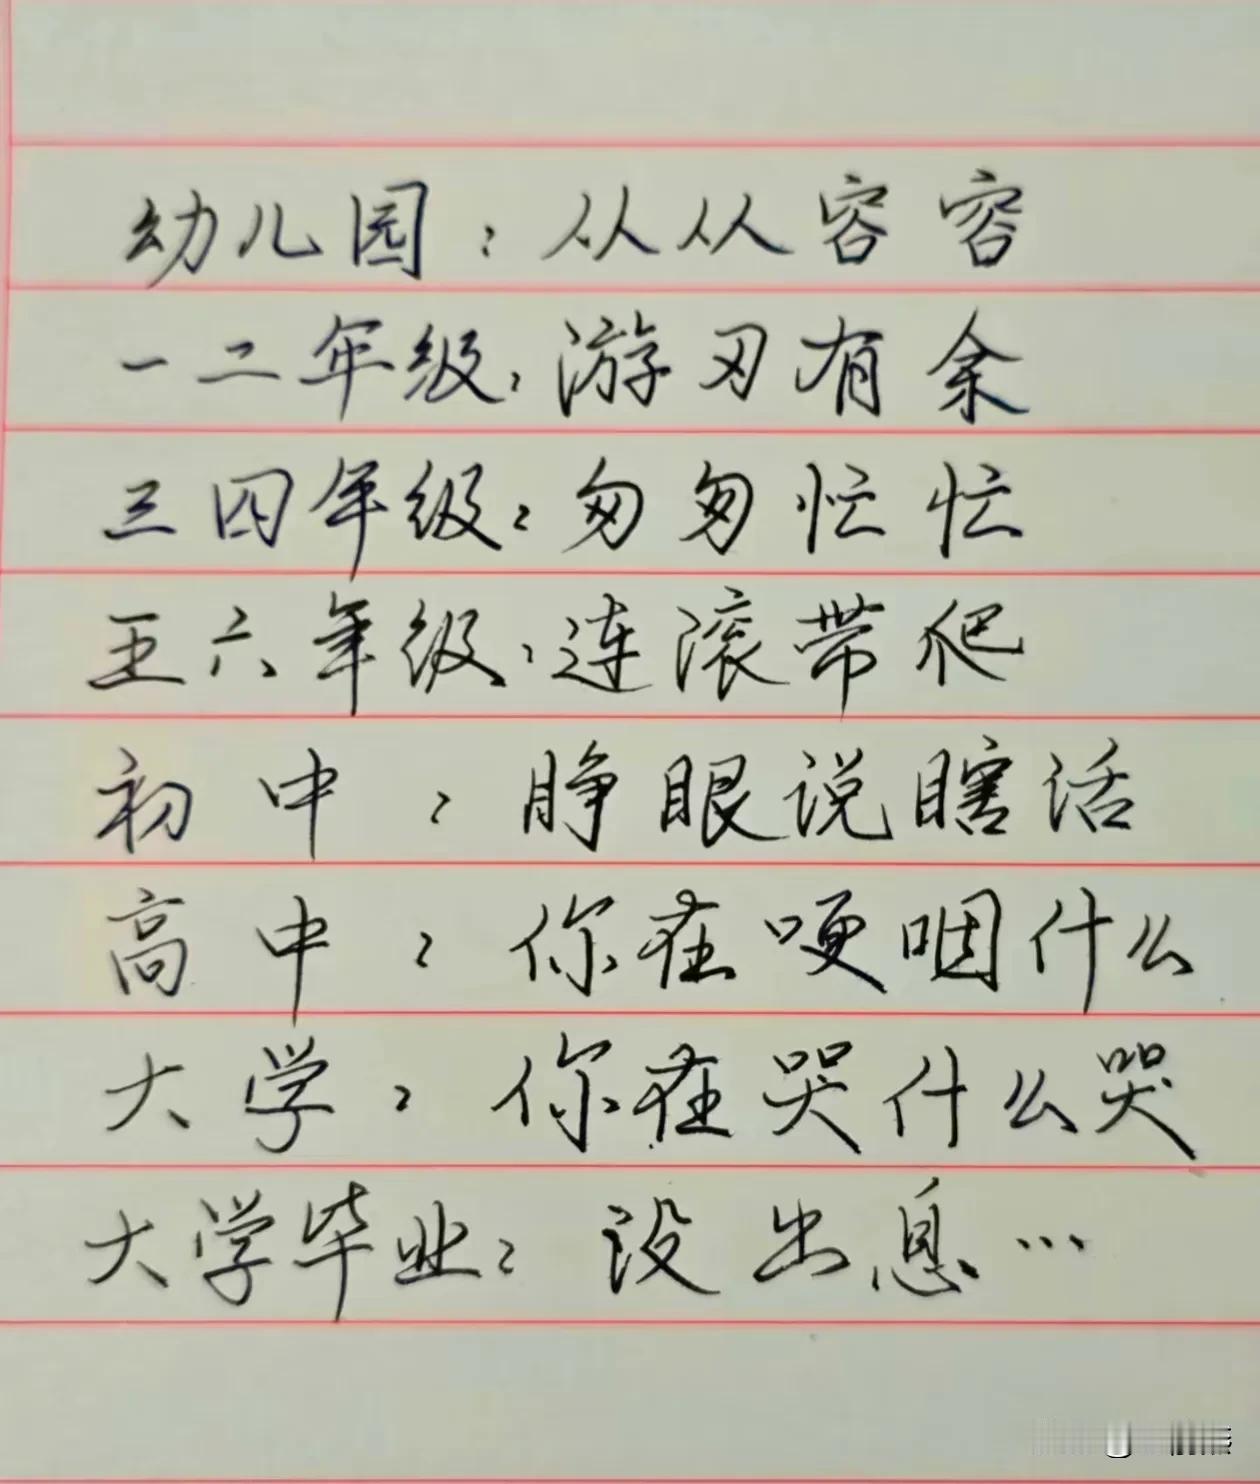 幼儿园：从从容容
一二年级：游刃有余
三四年级：匆匆忙忙
五六年级：连滚带爬
初中：睁眼说瞎话
高中：你在哽咽什么
大学：你在哭什么哭
大学毕业：没出息…